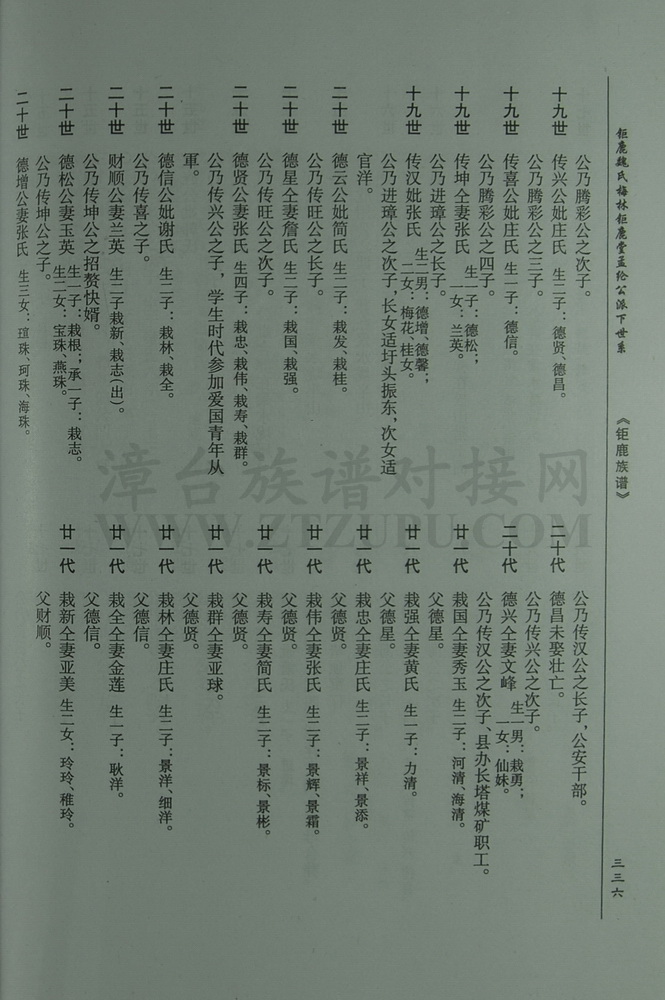 钜鹿魏氏梅林钜鹿堂孟纶公派下世系
《钜鹿族谱》
三三六
公乃腾彩公之次子。
十九世 传兴公妣庄氏 生二子：德贤、德昌。
公乃腾彩公之三子。
十九世 传喜公妣庄氏 生一子：德信。
公乃腾彩公之四子。
十九世 传坤仝妻张氏 生一子：德松；
一女：兰英。
公乃进璋公之长子。
十九世 传汉妣张氏 生二男：德增、德馨；
二女：梅花、桂女。
公乃进璋公之次子，长女适圩头振东，次女适
官洋。
二十世 德云公妣简氏 生二子：栽发、栽桂。
公乃传旺公之长子。
二十世 德星仝妻詹氏 生二子：栽国、栽强。
公乃传旺公之次子。
二十世 德贤公妻张氏 生四子：栽忠、栽伟、栽寿、栽群。
公乃传兴公之子，学生时代参加爱国青年从
軍。
二十世 德信公妣谢氏 生二子：栽林、栽全。
公乃传喜之子。
二十世 财顺公妻兰英 生二子栽新、栽志（出）。
公乃传坤公之招赘快婿。
二十世 德松公妻玉英 生一子：栽根；承一子：栽志。
生二女：宝珠、燕珠。
公乃传坤公之子。
二十世 德增公妻张氏 生三女：瑄珠、珂珠、海珠。
公乃传汉公之长子，公安干部。
二十代 德昌未娶壮亡。
公乃传兴公之次子。
二十代 德兴仝妻文峰 生一男：栽勇；
一女：仙妹。
公乃传汉公之次子，县办长塔煤矿职工。
廿一代 栽国仝妻秀玉 生二子：河清、海清。
父德星。
廿一代 栽强仝妻黄氏 生一子：力清。
父德星。
廿一代 栽忠仝妻庄氏 生二子：景祥、景添。
父德贤。
廿一代 栽伟仝妻张氏 生二子：景辉、景霜。
父德贤。
廿一代 栽寿仝妻简氏 生二子：景标、景彬。
父德贤。
廿一代 栽群仝妻亚球。
父德贤。
廿一代 栽林仝妻庄氏 生二子：景洋、细洋。
父德信。
廿一代 栽全仝妻金莲 生一子：耿洋。
父德信。
廿一代 栽新仝妻亚美 生二女：玲玲、稚玲。
父财顺。
漳台族谱对接网
WWW.ZTZUPU.COM